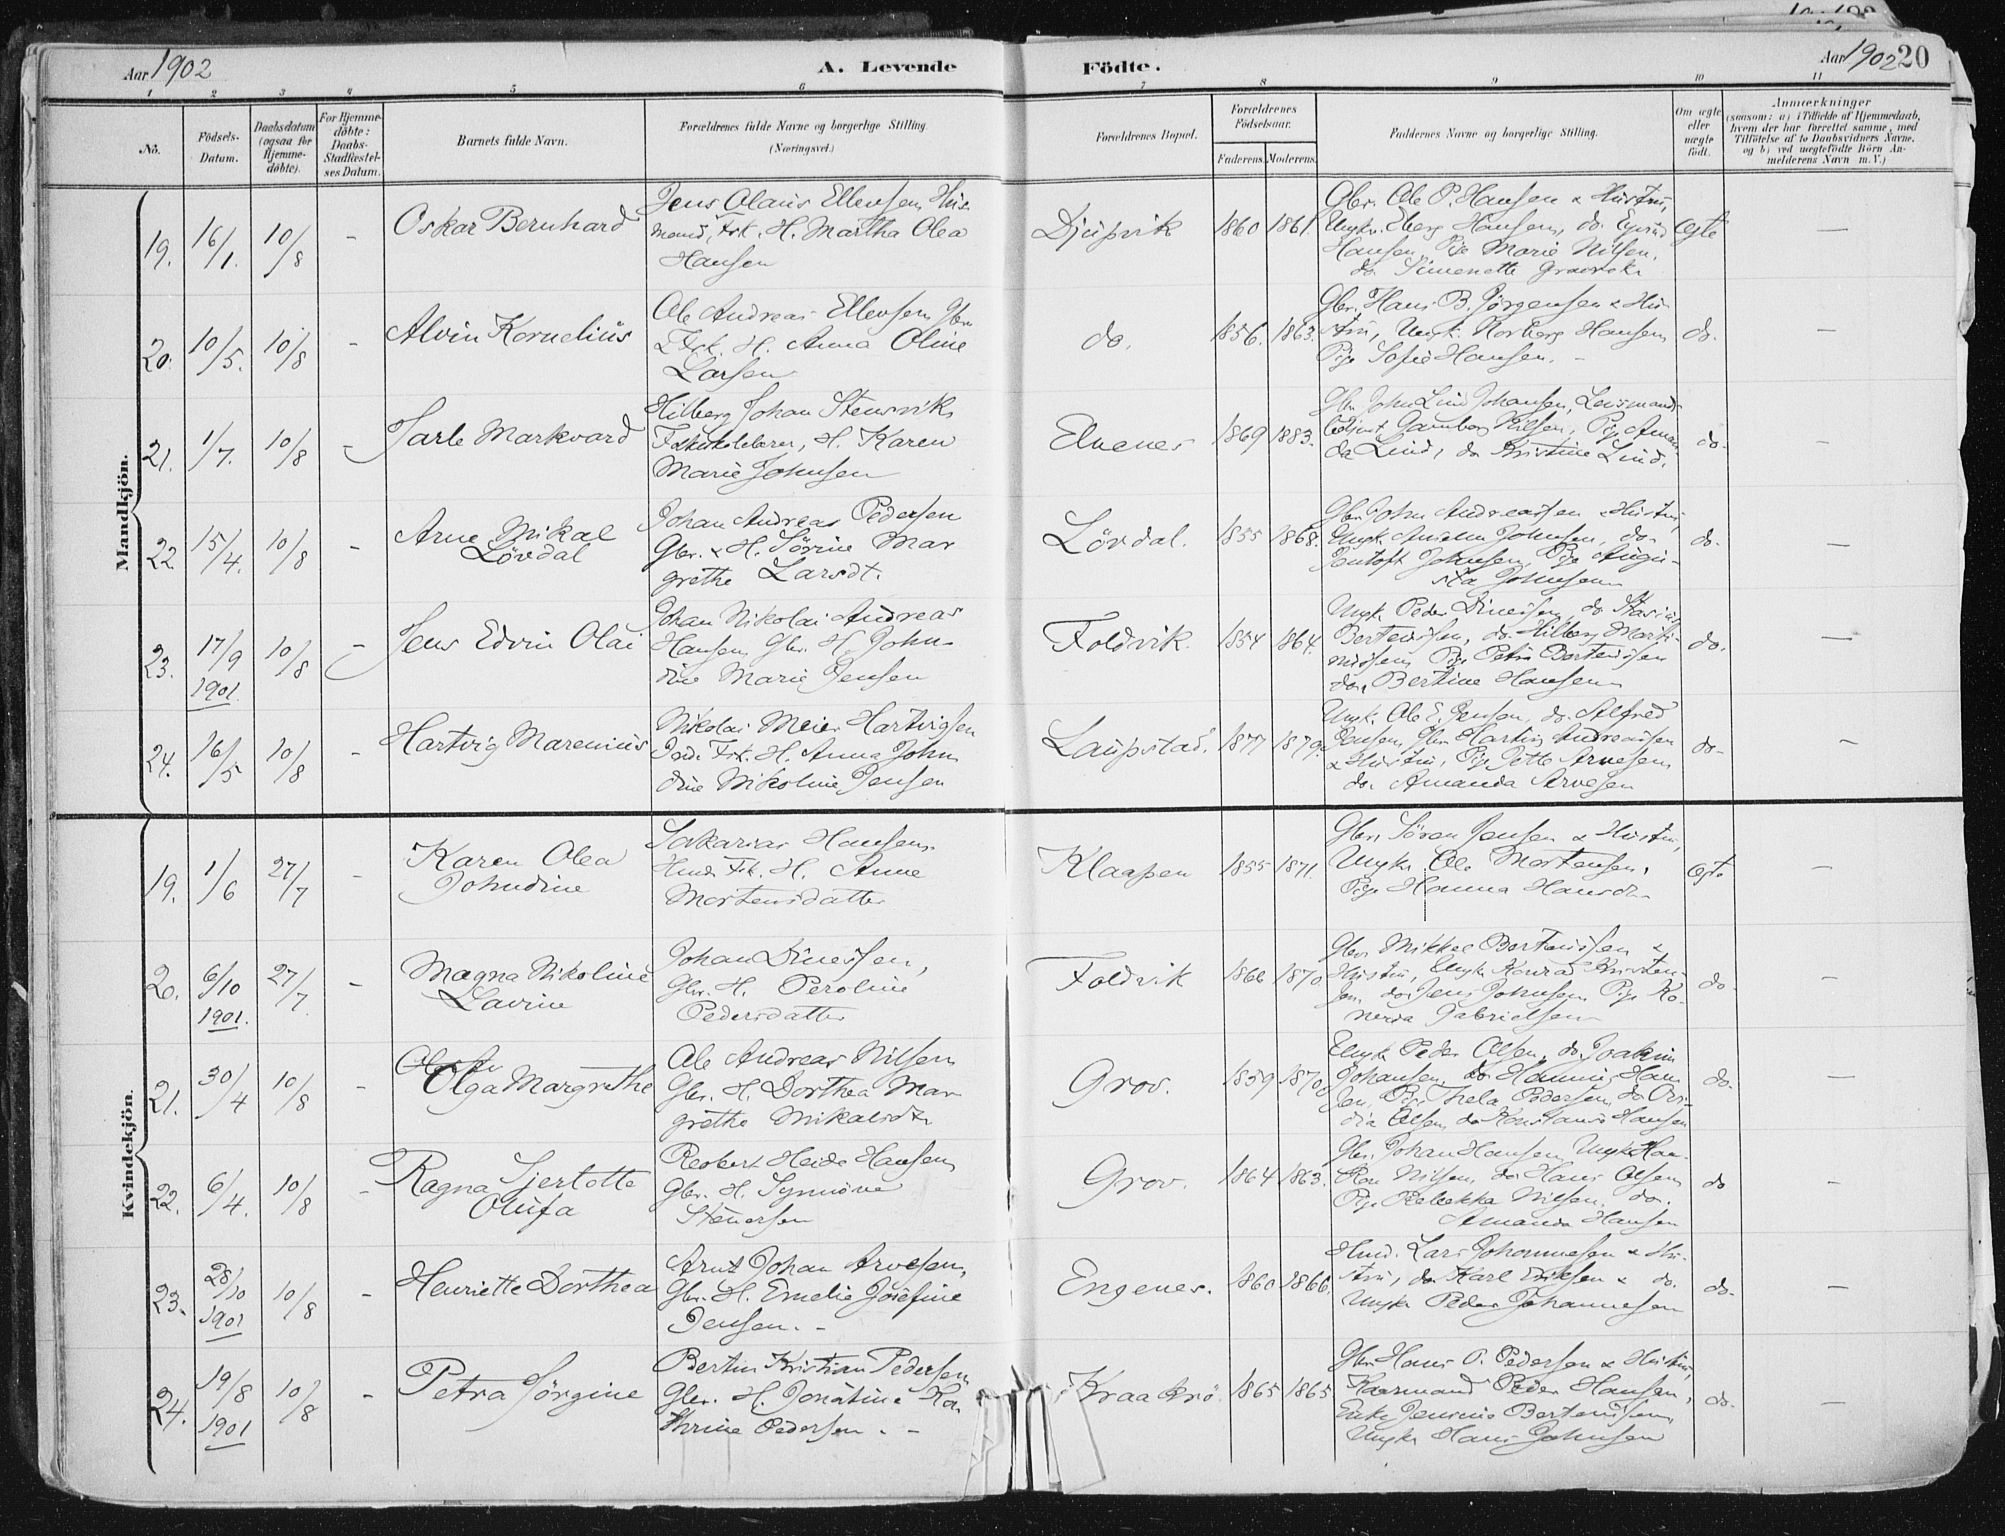 Aar 1902
A. Levende
Födte.
Aar 1902 20
1 2 3 4 5 6 7 8 9 10 11
No.
Födsels-Datum.
Daabsdatum (ogsaa for Hjemmedöbte).
For Hjemmedöbte: Daabs-Stadfæstelses Datum.
Barnets fulde Navn.
Forældrenes fulde Navne og borgerlige Stilling. (Næringsvei.)
Forældrenes Bopæl.
Forældrenes Födselsaar.
Faderens. Moderens.
Faddernes Navne og borgerlige Stilling.
Om ægte eller uægte födt.
Anmærkninger
(saasom: a) i Tilfælde af Hjemmedaab, hvem der har forrettet samme, med Tilföielse af to Daabsvidners Navne, og b) ved uægtefödte Börn Anmelderens Navn m. V.)
Mandkjön.
19. 16/1. 10/8 - Oskar Bernhard
Jens Olaus Ellevsen, Hus-
mand, Fisk. H. Martha Olea
Hansen
Djupvik 1860 1861
Gbr. Ole P. Hansen & Hustru,
Ungk. Eberg Hansen, do. Eyvind
Hansen, Pige Marie Nilsen,
do. Simonette
Ægte —
20. 10/5. 10/8 - Alvin Kornelius
Ole Andreas Ellevsen Gbr.
& Fisk. H. Anna Oline
Larsen
do. 1856. 1863.
Gbr. Hans B. Jörgensen & Hu-
stru, Ungk. Norberg Hansen
Pige Sofie Hansen. -
do. —
21. 1/7. 10/8 - Jarle Markvard
Hilberg Johan Stensvik,
H. Karen
Marie Johnsen
Elvenes 1869 1883.
Gbr. John Lind Johansen, Lensmands-
Nilsen, Pige Aman-
da Lind, do Kristine Lind.
do. —
22 15/4. 10/8 - Arne Mikal
Lövdal
Johan Andreas Pedersen
Gbr. & H. Sörine Mar
grethe Larsdt.
Lövdal. 1855 1868.
Gbr. John Andreassen & Hustru,
Ungk. Johnsen, do.
Pentoft Johnsen, Pige Augu-
sta Johnsen
do. —
23. 17/9 1901. 10/8 - Jens Edvin Olai
Johan Nikolai Andreas
Hansen, Gbr. H. John-
dine Marie Jensen
Foldvik. 1854 1864.
Ungk. Peder Dinesen, do
Berteussen, do. Hilberg Marti-
nussen, Pige Petra Berteussen
do. Bertine Hansen
do. —
24. 16/5 10/8 - Hartvig Marenius
Nikolai Meier Hartvigsen
Fisk. H. Anna John
dine Nikoline Jensen
Laupstad. 1877 1879.
Ungk. Ole E. Jensen, do. Alfred
Jensen, Gbr. Martin Andreassen
& Hustru, Pige Jette Arnesen
do. Amanda Arvesen
do. —
Kvindekjön.
19. 1/6 27/7 - Karen Olea
Johndine
Sakarias Hansen
Husm. Fisk. H. Anne
Mortensdatter
Klaapen 1855 1871.
Gbr. Sören Jensen & Hustru,
Ungk. Ole Mortensen,
Pige Hanna Hansdt.
Ægte —
20. 6/10 1901. 27/7. - Magna Nikoline
Lavine
Johan Dinessen,
Gbr. H. Peroline
Pedersdatter
Foldvik 1866 1870
Gbr. Mikkel Berteussen &
Hustru, Ungk. Konrad Kristen-
sen do Jens Johnsen, Pige Ko-
nerda Gabrielsen
do. —
21. 30/4 10/8 - Olga Margrethe
Ole Andreas Nilsen
Gbr. H. Dorthea Mar
grethe Mikalsdt.
Grov. 1859 1870
Ungk. Peder Olsen, do. Joakim
Johansen, do Henning Han
sen, Pige Thela Pedersen, do Ovi-
dia Olsen, do Konstance Hansen
do. —
22. 6/4. 10/8 - Ragna Tjerlotte
Olufa
Robert Heide Hansen
Gbr. H. Synnöve
Stenersen
Grov. 1864 1863.
Gbr. Johan Hansen, Ungk. Haa-
kon Nilsen, do Hans Olsen
Pige Rebekka Nilsen, do.
Amanda Hansen
do —
23. 28/10 1901 10/8 - Henriette Dorthea
Arnt Johan Arvesen,
Gbr. H. Emelie Josefine
Jensen. -
Engenes. 1860 1866.
Husmd. Lars Johannesen & Hu-
stru, do. Karl Eriksen & do.
Ungk. Peder Johannesen
do. —
24. 19/8 1901 10/8 - Petra Jörgine
Bertin Kristian Pedersen
Gbr. H. Jonatine Ka
thrine Pedersen. -
Kraakrö. 1865 1865
Gbr. Hans O. Pedersen & Hustru,
Kaarmand Peder Hansen,
Enke Jensine Berteussen,
Ungk. Hans Johnsen
do. —